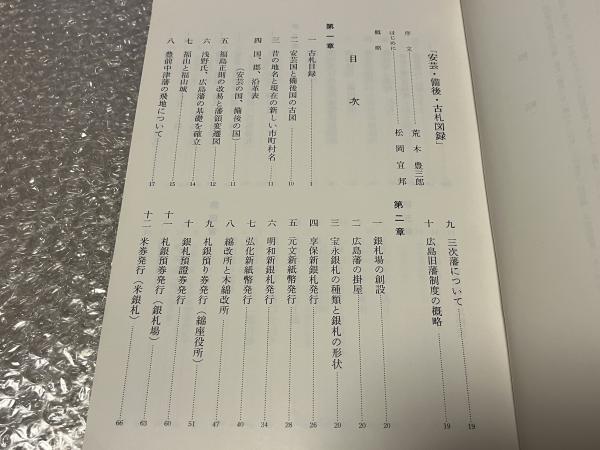 「安芸・備後・古札図録」
序文……荒木豊三郎
はじめに……松岡宜邦
概略
目次
第一章
一 古札目録……1
二 安芸国と備後国の古図……10
三 昔の地名と現在の新しい市町村名……11
四 国、郡、沿革表……11
(安芸の国、備後の国)
五 福島正則の改易と藩領変遷図……12
六 浅野氏、広島藩の基礎を確立……14
七 福山と福山城……15
八 豊前中津藩の飛地について……17
九 三次藩について……19
十 広島旧藩制度の概略……19
第二章
一 銀札場の創設……20
二 広島藩の掛屋……20
三 宝永銀札の種類と銀札の形状……20
四 享保新銀札発行……26
五 元文新紙幣発行……28
六 明和新銀札発行……34
七 弘化新紙幣発行……40
八 綿改所と木綿改所……38
九 札銀預り券発行(綿座役所)……47
十 銀札預證券発行……51
十一 札銀預券発行(銀札場)……60
十二 米券発行(米銀札)……63
66